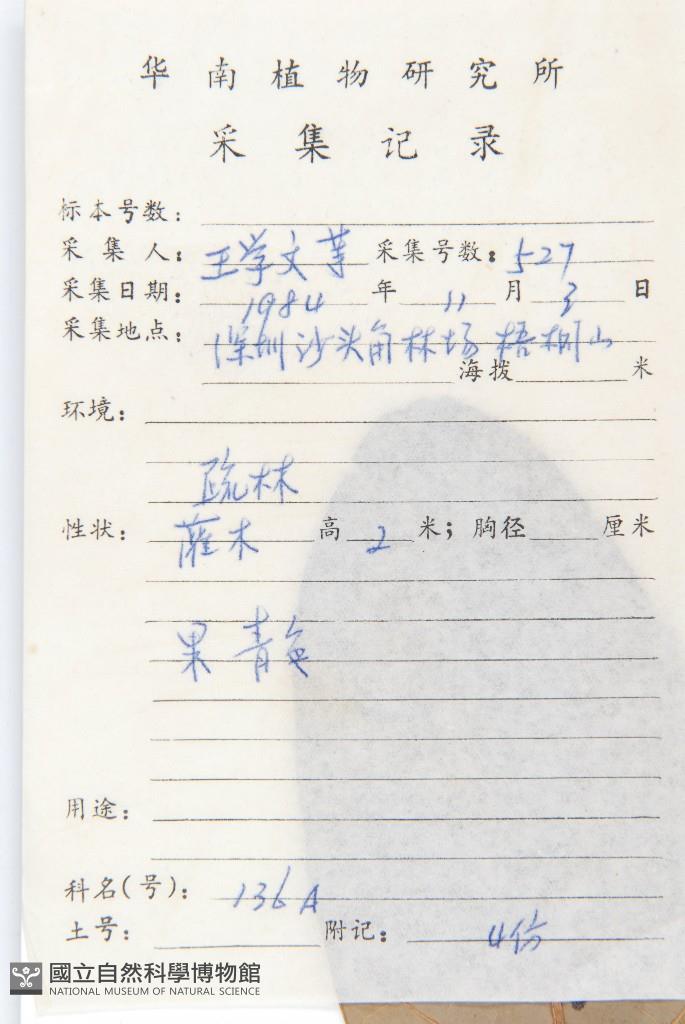 华南植物研究所
采集记录
标本号数：
采集人：王学文等 采集号数：527
采集日期：1984年11月3日
采集地点：深圳沙头角林场梧桐山
海拨 米
环境：
疏林
性状：灌木 高2米；胸径 厘米
果青色
用途：
科名(号)：136A
土号： 附记：4份
國立自然科學博物館
NATIONAL MUSEUM OF NATURAL SCIENCE